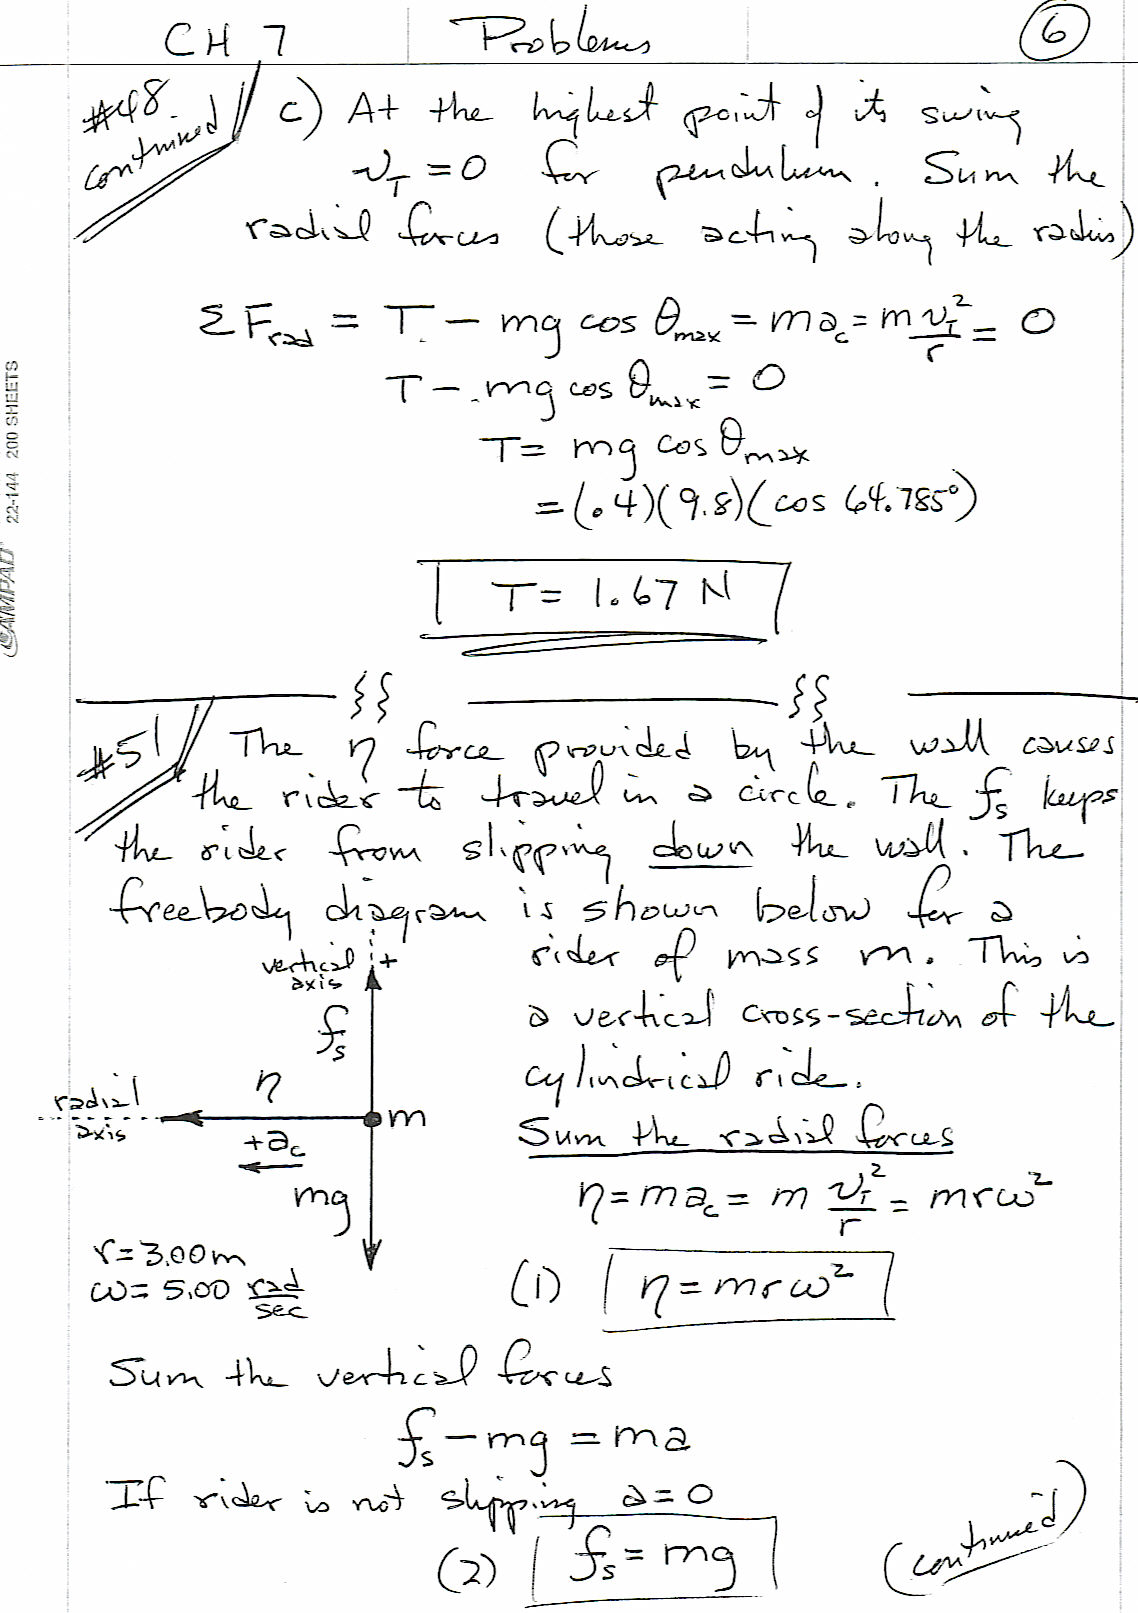 CH 7 Problems 6
#48 continued
c) At the highest point of its swing
v_T = 0 for pendulum. Sum the
radial forces (those acting along the radius)
ΣF_rad = T - mg cos θ_max = ma_c = m v_T²/r = 0
T - mg cos θ_max = 0
T = mg cos θ_max
= (.4)(9.8)(cos 64.785°)
T = 1.67 N
CAMPAD 22-144 200 SHEETS
#51 The η force provided by the wall causes
the rider to travel in a circle. The f_s keeps
the rider from slipping down the wall. The
freebody diagram is shown below for a
rider of mass m. This is
a vertical cross-section of the
cylindrical ride.
vertical axis +
f_s
η
radial axis
m
+a_c
mg
r = 3.00 m
ω = 5.00 rad/sec
Sum the radial forces
η = ma_c = m v_T²/r = mrω²
(1) η = mrω²
Sum the vertical forces
f_s - mg = ma
If rider is not slipping a = 0
(2) f_s = mg
(continued)